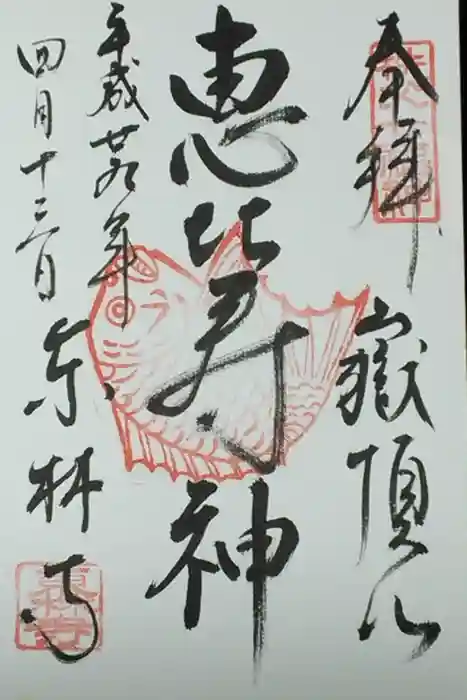 奉拝
嶽頂山
恵比寿神
平成廿九年
四月十三日
東林寺